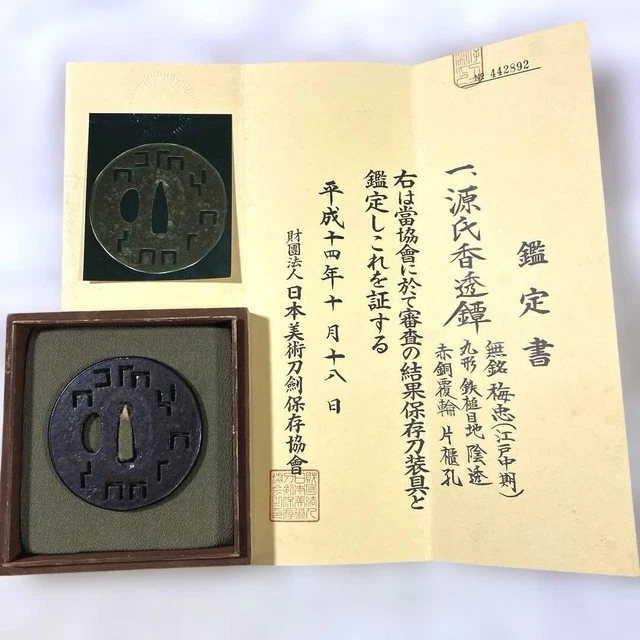 № 442892
鑑定書
一、源氏香透鐔
無銘 梅忠(江戸中期)
丸形 鉄槌目地 陰透
赤銅覆輪 片櫃孔
右は當協會に於て審査の結果保存刀装具と
鑑定しこれを証する
平成十四年十月十八日
財團法人 日本美術刀劍保存協會